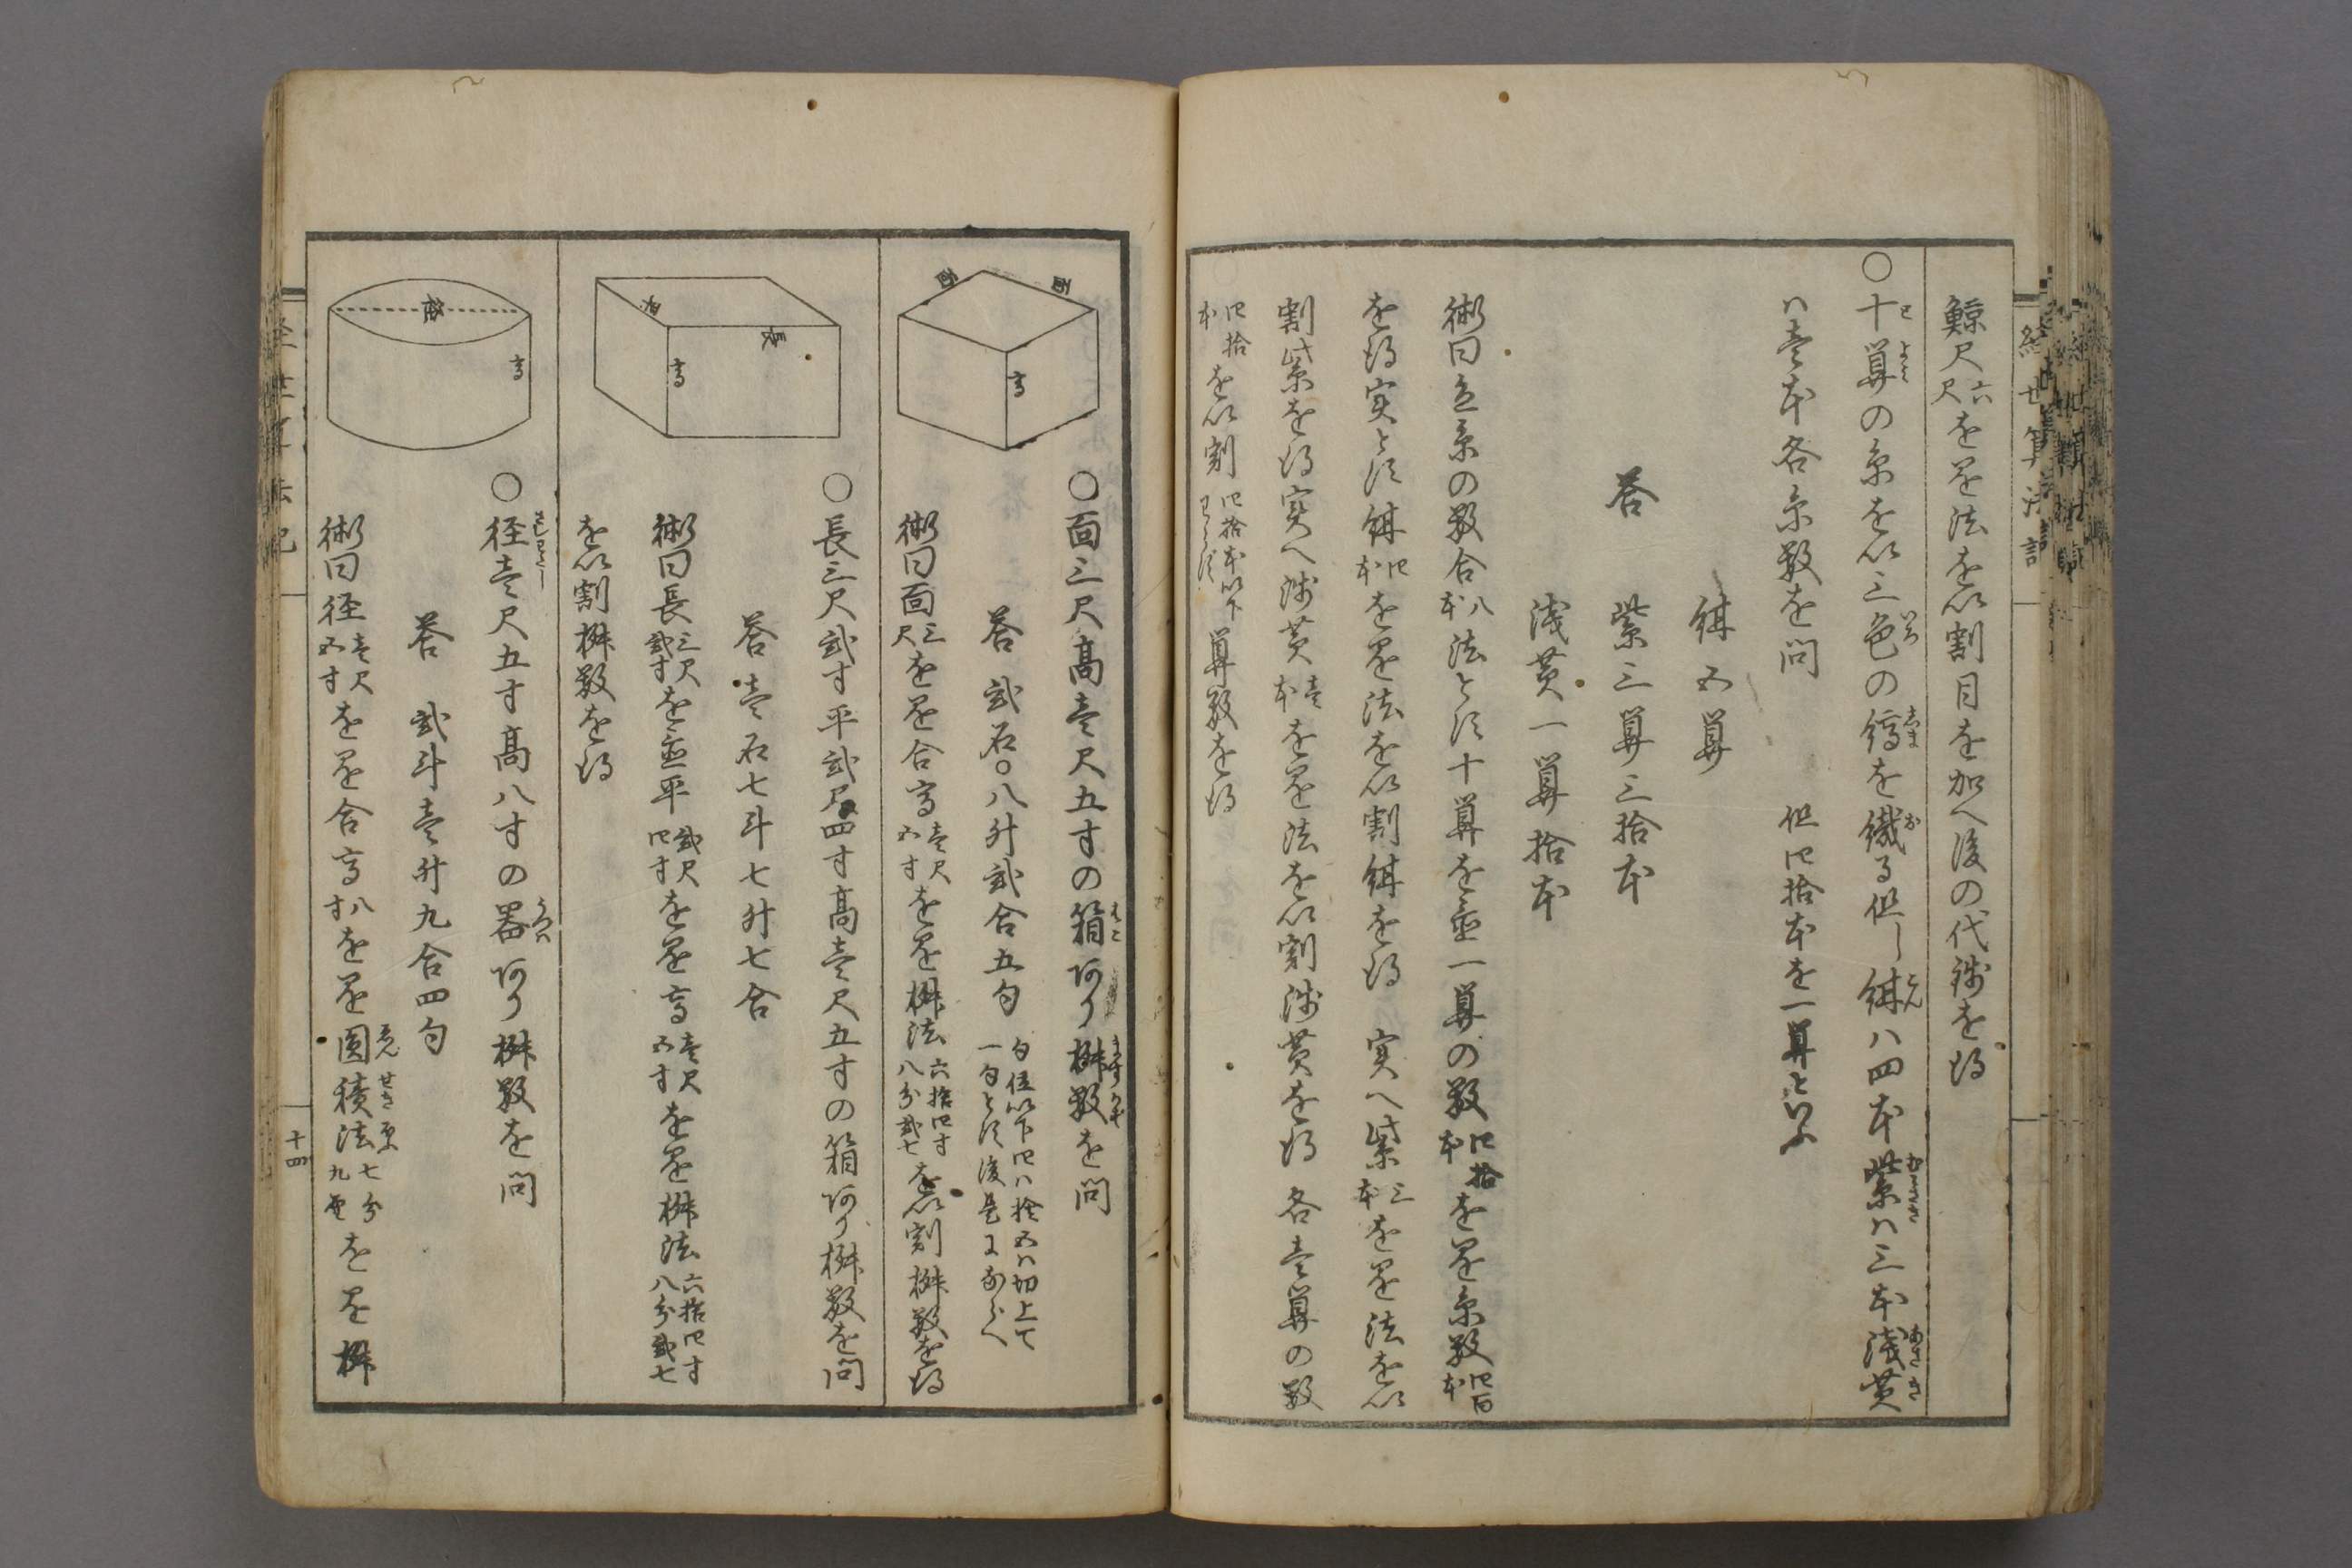 鯨尺六尺を因法を以割目を加へ後の代銭を得
○十算の糸を以三色の縞を織る但し紺ハ四本紫ハ三本浅黄
ハ壱本各糸数を問 但四拾本を一算といふ
紺五算
答 紫三算三拾本
浅黄一算拾本
術曰立糸の数合八本法とす十算を置一算の数四拾本を因糸数四百本
を得実とす紺四本を因法を以割紺を得 実へ紫三本を因法を以
割紫を得実へ浅黄壱本を因法を以割浅黄を得 各壱算の数
四拾本を以割四拾本以下算数を得
経世算法記
○面三尺高壱尺五寸の箱阿り桝数を問
答 弐石〇八升弐合五勺 勺位以下四ハ捨五ハ切上て一勺とす後是に
術曰面三尺を因合高壱尺五寸を因桝法六拾四寸八分弐七を以割桝数を得
面
面
高
○長三尺弐寸平弐尺四寸高壱尺五寸の箱阿り桝数を問
答 壱石七斗七升七合
術曰長三尺弐寸を置平弐尺四寸を因高壱尺五寸を因桝法六拾四寸八分弐七
を以割桝数を得
平
長
高
○径壱尺五寸高八寸の器阿り桝数を問
答 弐斗壱升九合四勺
術曰径壱尺五寸を因合高八寸を因圓積法七分九厘を因桝
径
高
十四